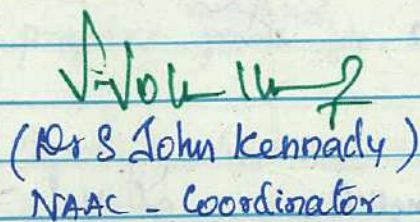 (Dr S John Kennady)
NAAC - Coordinator